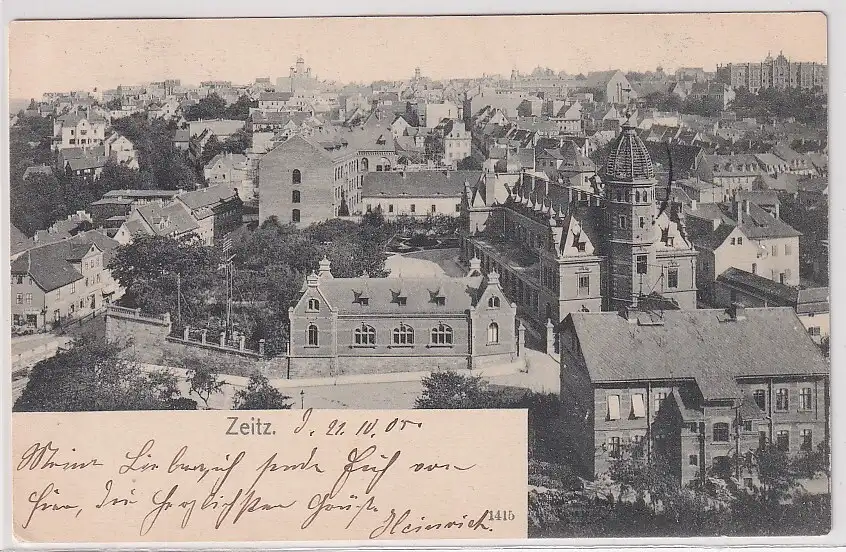 Zeitz. d. 21. IV. 05.
Meine Liebe, ich sende Ihr von
hier, die herzlichsten Grüße
Heinrich.
1415